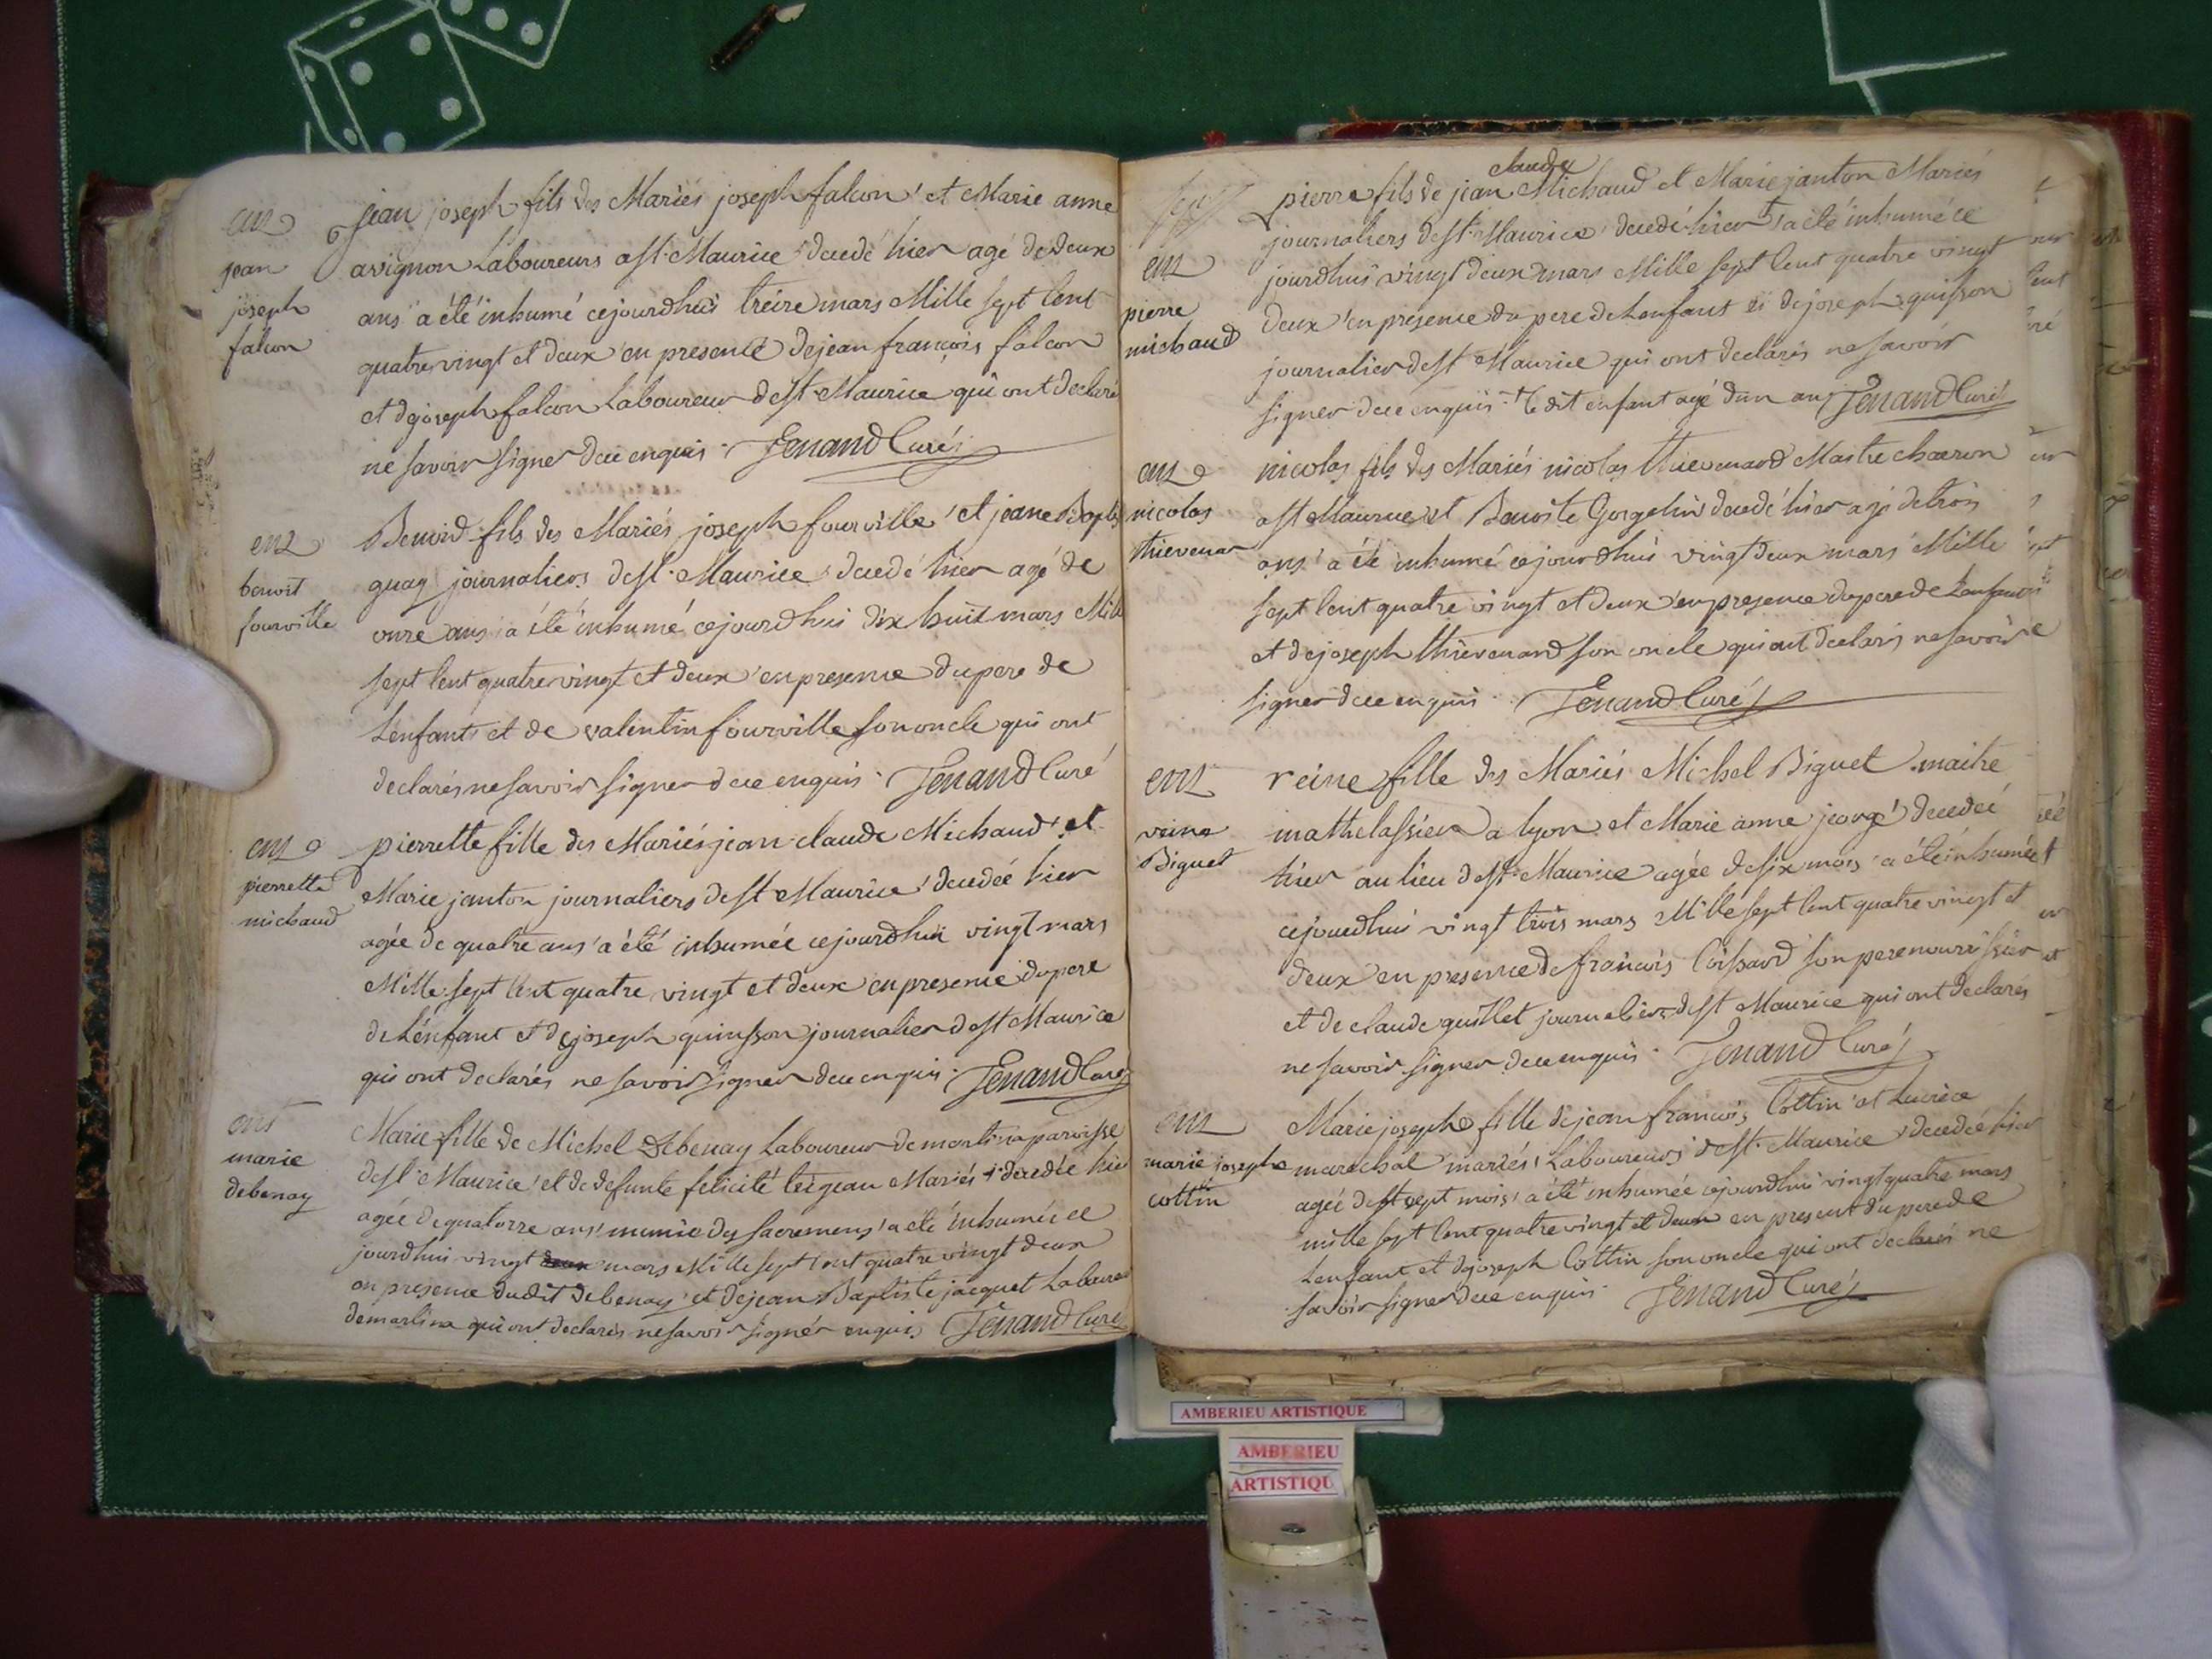 ent
jean
joseph
falcon
jean joseph fils des Mariés joseph falcon et Marie anne
avignon Laboureurs a St Maurice decedé hier agé de deux
ans a été inhumé cejourdhui treize mars Mille sept Cent
quatrevingt et deux en presence de jean francois falcon
et de joseph falcon Laboureur de St Maurice qui ont declaré
ne savoir signer de ce enquis Jenand Curé
ent
benoit
fourville
Benoid fils des Mariés joseph fourville et jeane
journaliers de St Maurice decedé hier agé de
onze ans a été inhumé cejourdhui dix huit mars Mille
sept Cent quatrevingt et deux en presence du pere de
Lenfant et de valentin fourville son oncle qui ont
declarés ne savoir signer de ce enquis Jenand Curé
ent
pierrette
michaud
pierrette fille des Mariés jean claude Michaud et
Marie janton journaliers de St Maurice decedée hier
agée de quatre ans a été inhumée cejourdhui vingt mars
Mille sept Cent quatre vingt et deux en presence du pere
de Lenfant et de joseph quinsson journalier de St Maurice
qui ont declarés ne savoir signer de ce enquis Jenand Curé
ent
marie
debenay
Marie fille de Michel Debenay Laboureur de martina paroisse
de St Maurice et de defunte felicité Mariés decedée hier
agée de quatorze ans munie des sacremens a eté inhumée ce
jourdhui vingt mars Mille sept Cent quatre vingt deux
en presence dudit debenay et de jean Baptiste jacquet Laboureur
de martina qui ont declarés ne savoir signér enquis Jenand Curé
claude
ent
pierre
michaud
pierre fils de jean Michaud et Marie janton Mariés
journaliers de St Maurice decedé hier a été inhumé ce
jourdhui vingt deux mars Mille sept Cent quatre vingt
deux en presence du pere de Lenfant et de joseph quisson
journalier de St Maurice qui ont declarés ne savoir
signer de ce enquis le dit enfant agé dun an Jenand Curé
ent
nicolas
thievenar
nicolas fils des Mariés nicolas thievenard Maitre charron
a St Maurice et Benoite Gorgelin decedé hier agé de trois
ans a été inhumé cejourdhui vingt deux mars Mille
sept Cent quatre vingt et deux en presence du pere de Lenfant
et de joseph thievenard son oncle qui ont declarés ne savoir
signer de ce enquis Jenand Curé
ent
reine
Biguet
reine fille des Mariés Michel Biguet maitre
mathelassier a lyon et Marie anne decedeé
hier au lieu de St Maurice agée de six mois a été inhumée
cejourdhui vingt trois mars Mille sept Cent quatre vingt et
deux en presence de francois son pere nourissier
et de claude guillet journalier de St Maurice qui ont declarés
ne savoir signer de ce enquis Jenand Curé
ent
marie josephe
cottin
Marie josephe fille de jean francois Cottin et Lucrèce
marechal mariés Laboureurs de St Maurice decedeé hier
agée de sept mois a été inhumée cejourdhui vingt quatre mars
mille sept Cent quatre vingt et deux en present du pere de
Lenfant et de joseph Cottin son oncle qui ont declaré ne
savoir signer de ce enquis Jenand Curé
AMBERIEU ARTISTIQUE
AMBERIEU
ARTISTIQU